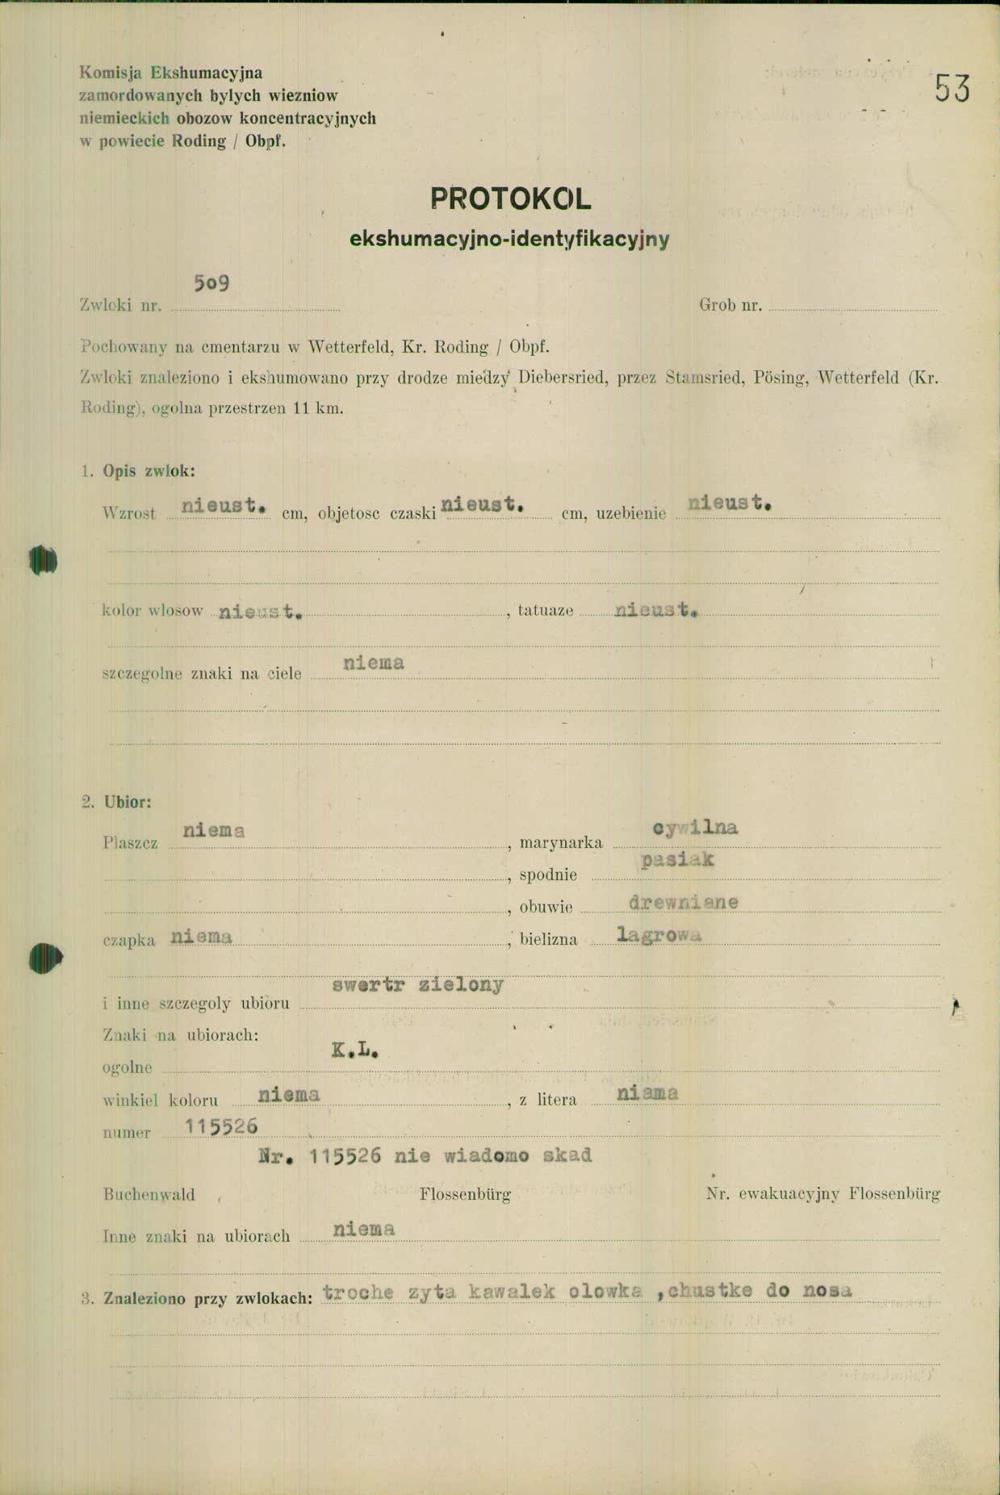 Komisja Ekshumacyjna
zamordowanych bylych wiezniow
niemieckich obozow koncentracyjnych
w powiecie Roding / Obpf.
53
PROTOKOL
ekshumacyjno-identyfikacyjny
Zwloki nr. 509 Grob nr.
Pochowany na cmentarzu w Wetterfeld, Kr. Roding / Obpf.
Zwloki znaleziono i ekshumowano przy drodze miedzy Diebersried, przez Stamsried, Pösing, Wetterfeld (Kr.
Roding), ogolna przestrzen 11 km.
1. Opis zwlok:
Wzrost nieust. cm, objetosc czaski nieust. cm, uzebienie nieust.
kolor wlosow nieust. , tatuaze nieust.
szczegolne znaki na ciele niema
2. Ubior:
Plaszcz niema , marynarka cywilna
, spodnie pasiak
, obuwie drewniane
czapka niema , bielizna lagrowa
i inne szczegoly ubioru swertr zielony
Znaki na ubiorach:
ogolne K.L.
winkiel koloru niema , z litera niema
numer 115526
Nr. 115526 nie wiadomo skad
Buchenwald Flossenbürg Nr. ewakuacyjny Flossenbürg
Inne znaki na ubiorach niema
3. Znaleziono przy zwlokach: troche zyta kawalek olowka ,chustke do nosa